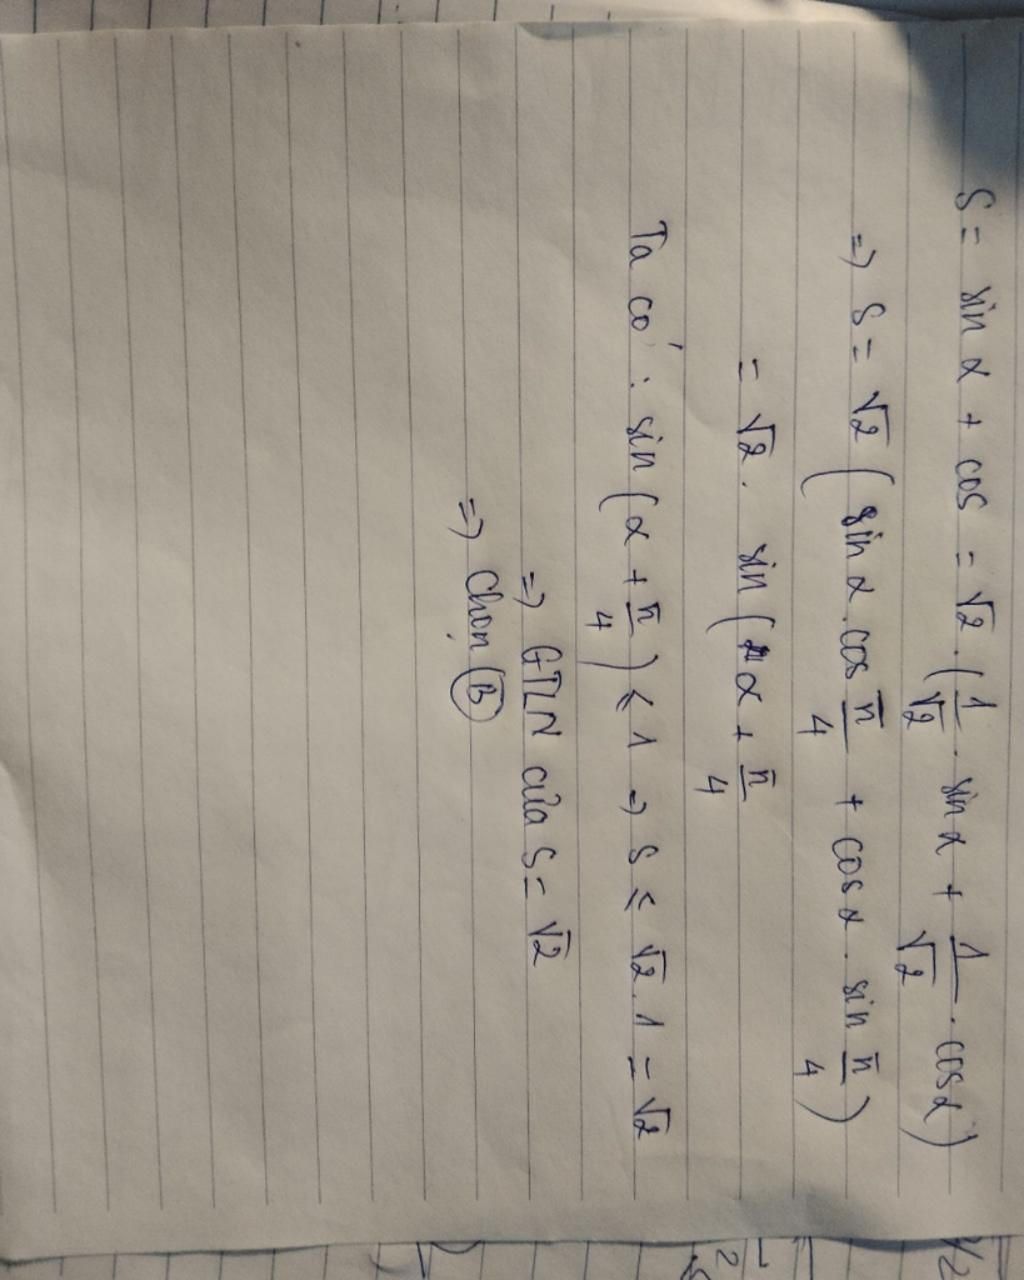 S = sin α + cos = √2 . (1/√2 . sin α + 1/√2 . cos α)
=> S = √2 (sin α . cos π/4 + cos α . sin π/4)
= √2 . sin (α + π/4
Ta có : sin (α + π/4) ≤ 1 => S ≤ √2 . 1 = √2
=> GTLN của S = √2
=> Chọn B